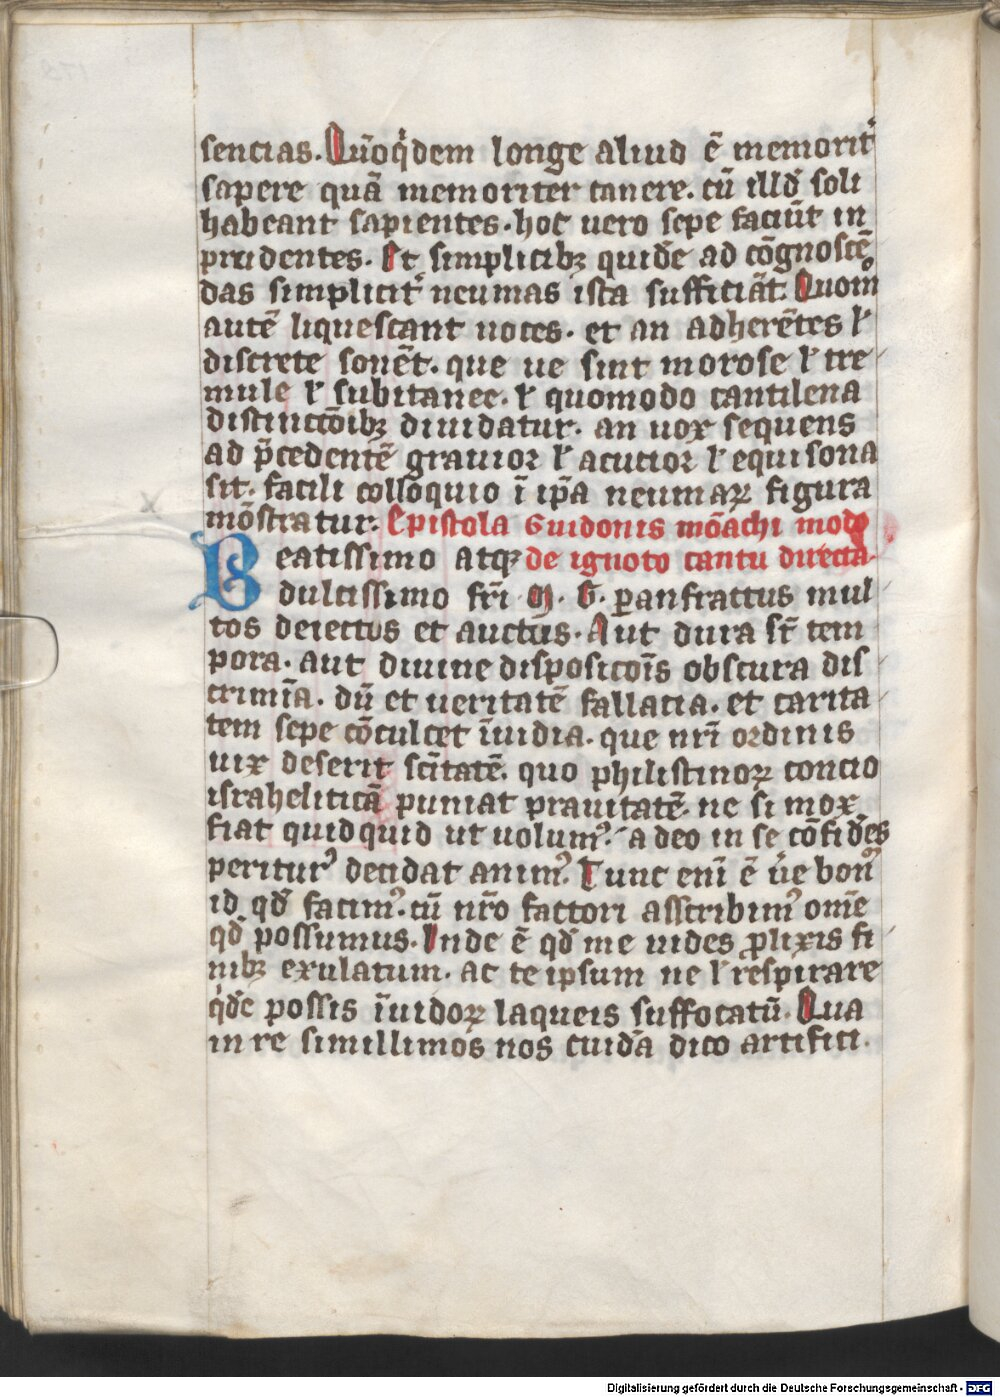 sencias. Qūoq̇dem longe aliud ē memorit̾
sapere quā memoriter canere. cū illd̾ soli
habeant sapientes. hoc uero sepe faciūt in
prudentes. At simplicibꝫ quidē ad cōgnoscē
das simplicit̾ neumas ista sufficiāt. Quomͦ
autē liquescant uoces. et an adherētes ł
discrete sonēt. que ue sint morose ł tre
mule ł subitanee. ł quomodo cantilena
distinccōibꝫ diuidatur. an uox sequens
ad p̄cedentē grauior ł acucior ł equisona
sit. facili colloquio ī ip̄a neumaꝝ figura
mōstratur. Epistola Guidonis mōachi modo
Beatissimo atqꝫ de ignoto cantu directa
dulcissimo fr̄i M. G. ꝑanfractus mul
tos deiectus et auctus. Aut dura sr̄ tem
pora. aut diuine disposicōis obscura dis
crimīa. dū et ueritatē fallacia. et carita
tem sepe cōculcet īuidia. que nr̄i ordinis
uix deserit sc̄itatē. quo philistinoꝝ concio
israheliticā puniat prauitatē. ne si mox
fiat quidquid ut uolumꝰ. adeo in se cōfidēs
periturꝰ decidat animꝰ. Tunc enī ē ūe bonū
id qd̾ facimꝰ. cū nr̄o factori asscribimꝰ om̄e
qd̾ possumus. Inde ē qd̾ me uides ꝓlixis fi
nibꝫ exulatum. ac te ipsum ne ł respirare
q̇dē possis īuidoꝝ laqueis suffocatū. Qua
in re simillimos nos cuidā dico artifici.
Digitalisierung gefördert durch die Deutsche Forschungsgemeinschaft - DFG